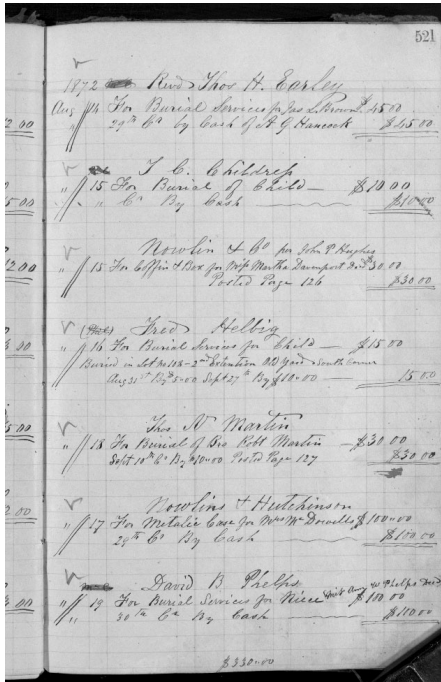 521
1872 Revd Thos H. Earley
Aug 14 For Burial Services for Jas L. Brown $45.00
" 29th Cr by Cash of A G Hancock $45.00
T C. Childress
" 15 For Burial of Child — $10.00
" " Cr By Cash $10.00
Nowlin & Co per John P Hughes
" 15 For Coffin & Box for Miss Martha Davenport Decd $30.00
Posted Page 126 $30.00
Fred Helbig
" 16 For Burial Services for Child — $15.00
Buried in Lot No 108 - 2nd Extention Old Yard South Corner
Aug 31st By $5.00 Sept 27th By $10.00 — 15.00
Thos N Martin
" 18 For Burial of Bro Robt Martin — $30.00
Sept 10th Cr By $10.00 Posted Page 127 $30.00
Nowlins & Hutchinson
" 17 For Metalic Case for Mrs $100.00
29th Cr By Cash $100.00
David B Phelps
" 19 For Burial Services for Niece Phelps Decd $100.00
" 30th Cr By Cash $100.00
$330.00
2.00
5.00
12.00
3.00
5.00
2.00
3.00